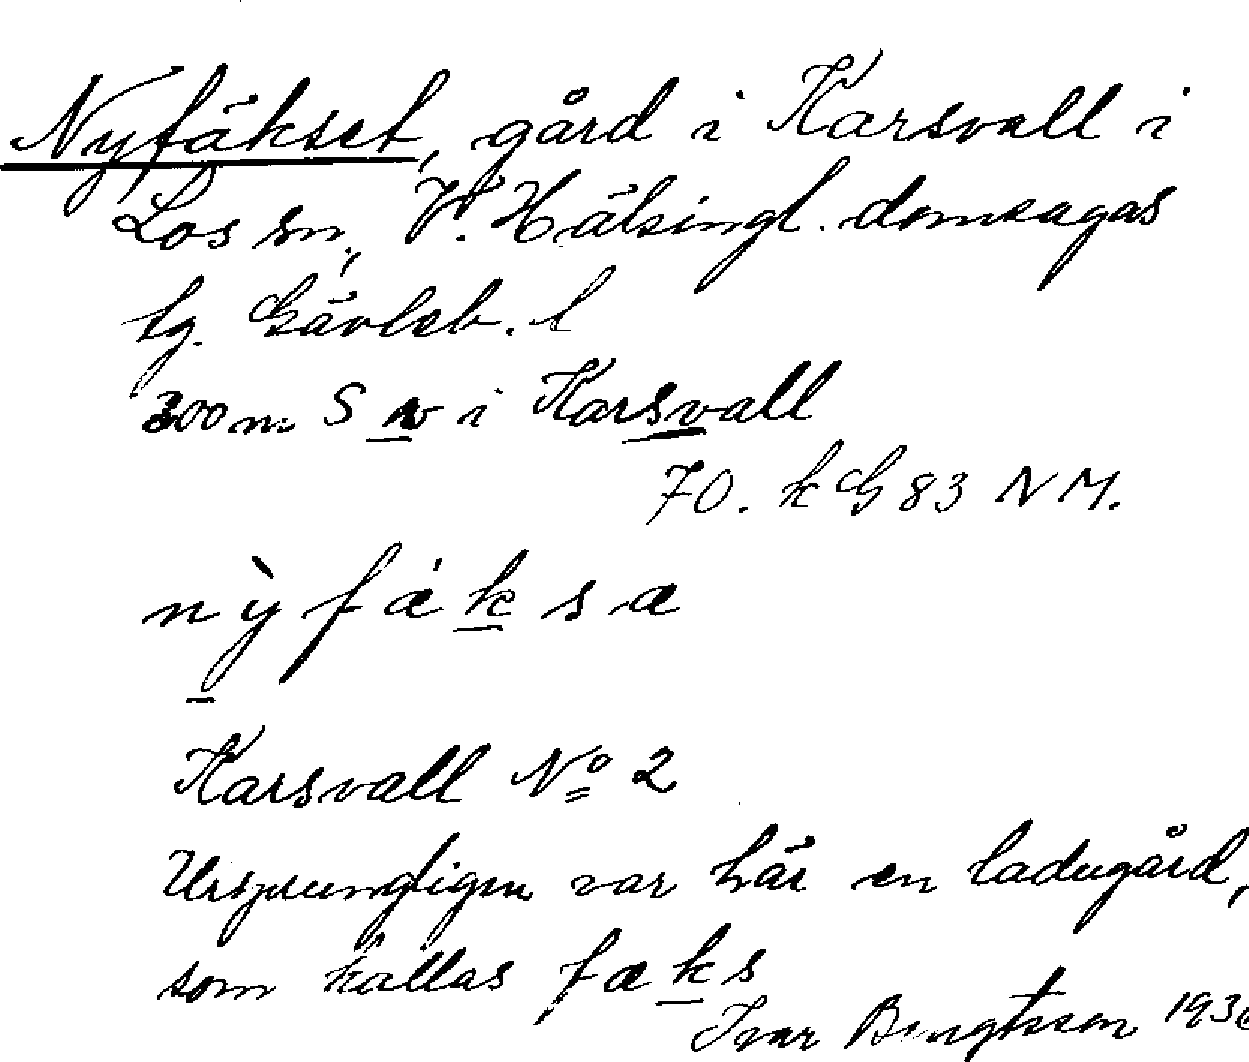 Nyfäkset, gård i Karsvall i
Los sn, V. Hälsingl. domsagas
tg. Gävleb. l
300m S v i Karsvall
70. k G 83 N M.
nỳfǽksæ
Karsvall No 2
Ursprungligen var här en ladugård,
som kallas fæks
Ivar Bengtsson